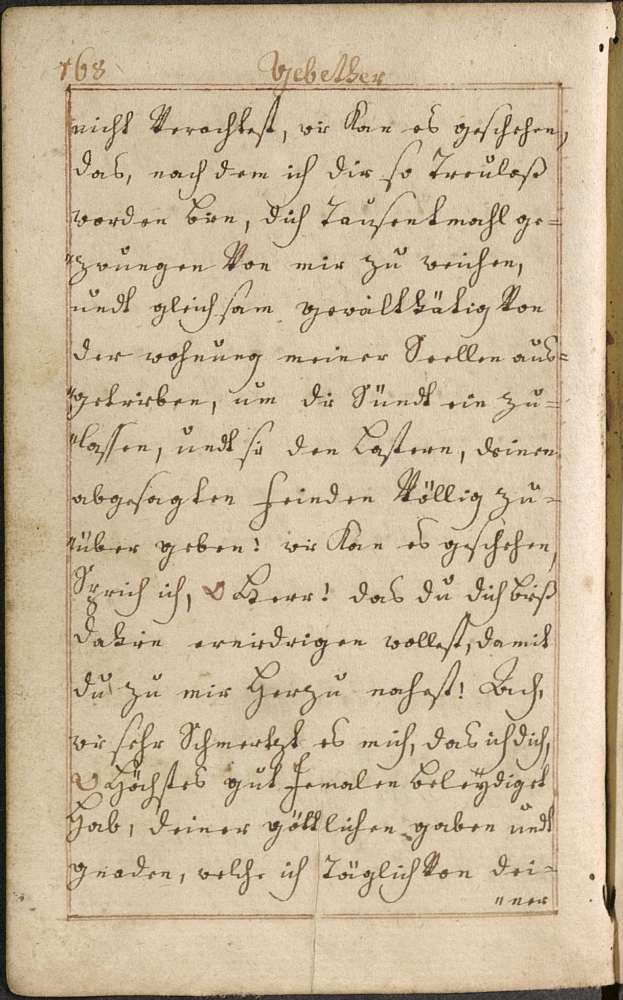 168
Gebether
nicht Verachtest, wie Kan es geschehen,
das, nach dem ich dir so Treuloß
worden bin, dich Tausentmahl ge=
"zwungen Von mir zu weichen,
undt gleichsam gewaltthätig Von
der wohnung meiner Seellen aus=
"getrieben, um die Sündt ein zu=
"lassen, undt sie den Lastern, deinen
abgesagten feinden Völlig zu=
"über geben! wie Kan es geschehen,
Sprich ich, O Herr! das du dich biß
dahin ernidrigen wollest, damit
du zu mir Herzu nahest! Ach,
wie sehr Schmertzt es mich, das ich dich,
O Höchstes gut Jemalen beleydiget
Hab, deiner göttlichen gaben undt
gnaden, welche ich Täglich Von dei=
"ner